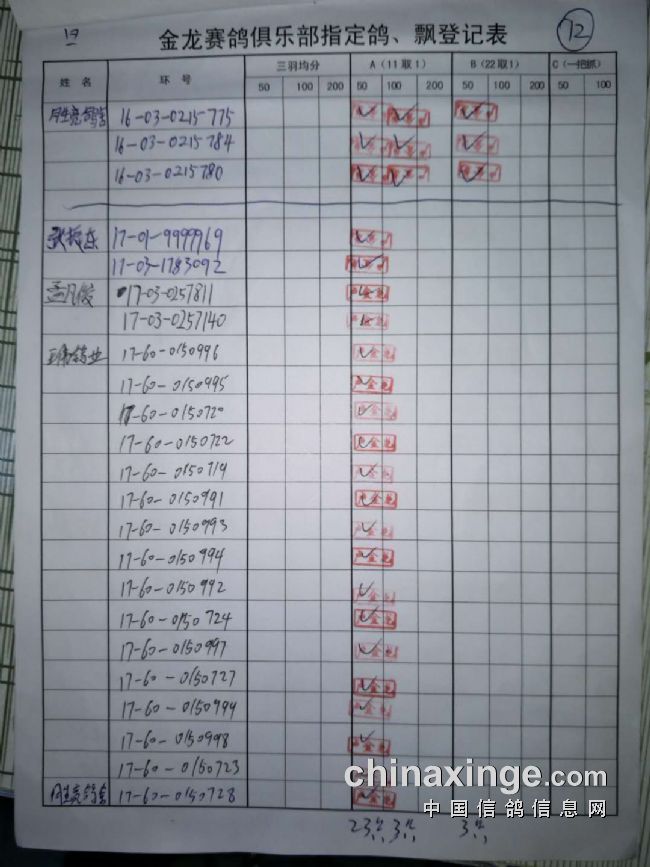 19
72
金龙赛鸽俱乐部指定鸽、飘登记表
姓名 环号 三羽均分 A（11取1） B（22取1） C（一把抓）
50 100 200 50 100 200 50 100 200 50 100
16-03-0215775
16-03-0215784
16-03-0215780
张振东 17-01-9999969
17-03-1783092
孟凡俊 17-03-0257811
17-03-0257140
鸽业 17-60-0150996
17-60-0150995
17-60-0150720
17-60-0150722
17-60-0150719
17-60-0150991
17-60-0150993
17-60-0150994
17-60-0150992
17-60-0150724
17-60-0150997
17-60-0150727
17-60-0150999
17-60-0150998
17-60-0150723
17-60-0150728
23 3 3
chinaxinge.com
中国信鸽信息网